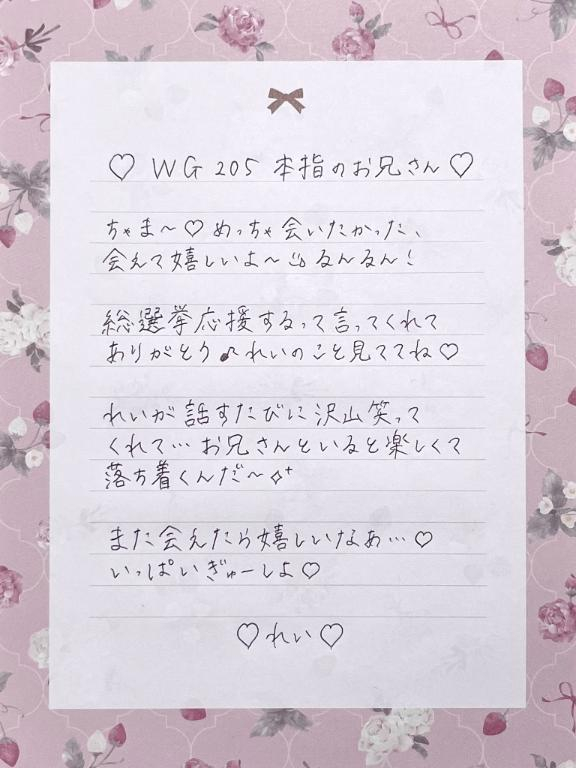 ♡ WG 205 本指のお兄さん ♡
ちゃま〜♡めっちゃ会いたかった、
会えて嬉しいよ〜♨るんるん！
総選挙応援するって言ってくれて
ありがとう♪れいのこと見ててね♡
れいが話すたびに沢山笑って
くれて…お兄さんといると楽しくて
落ち着くんだ〜✧⁺
また会えたら嬉しいなあ…♡
いっぱいぎゅーしよ♡
♡れい♡